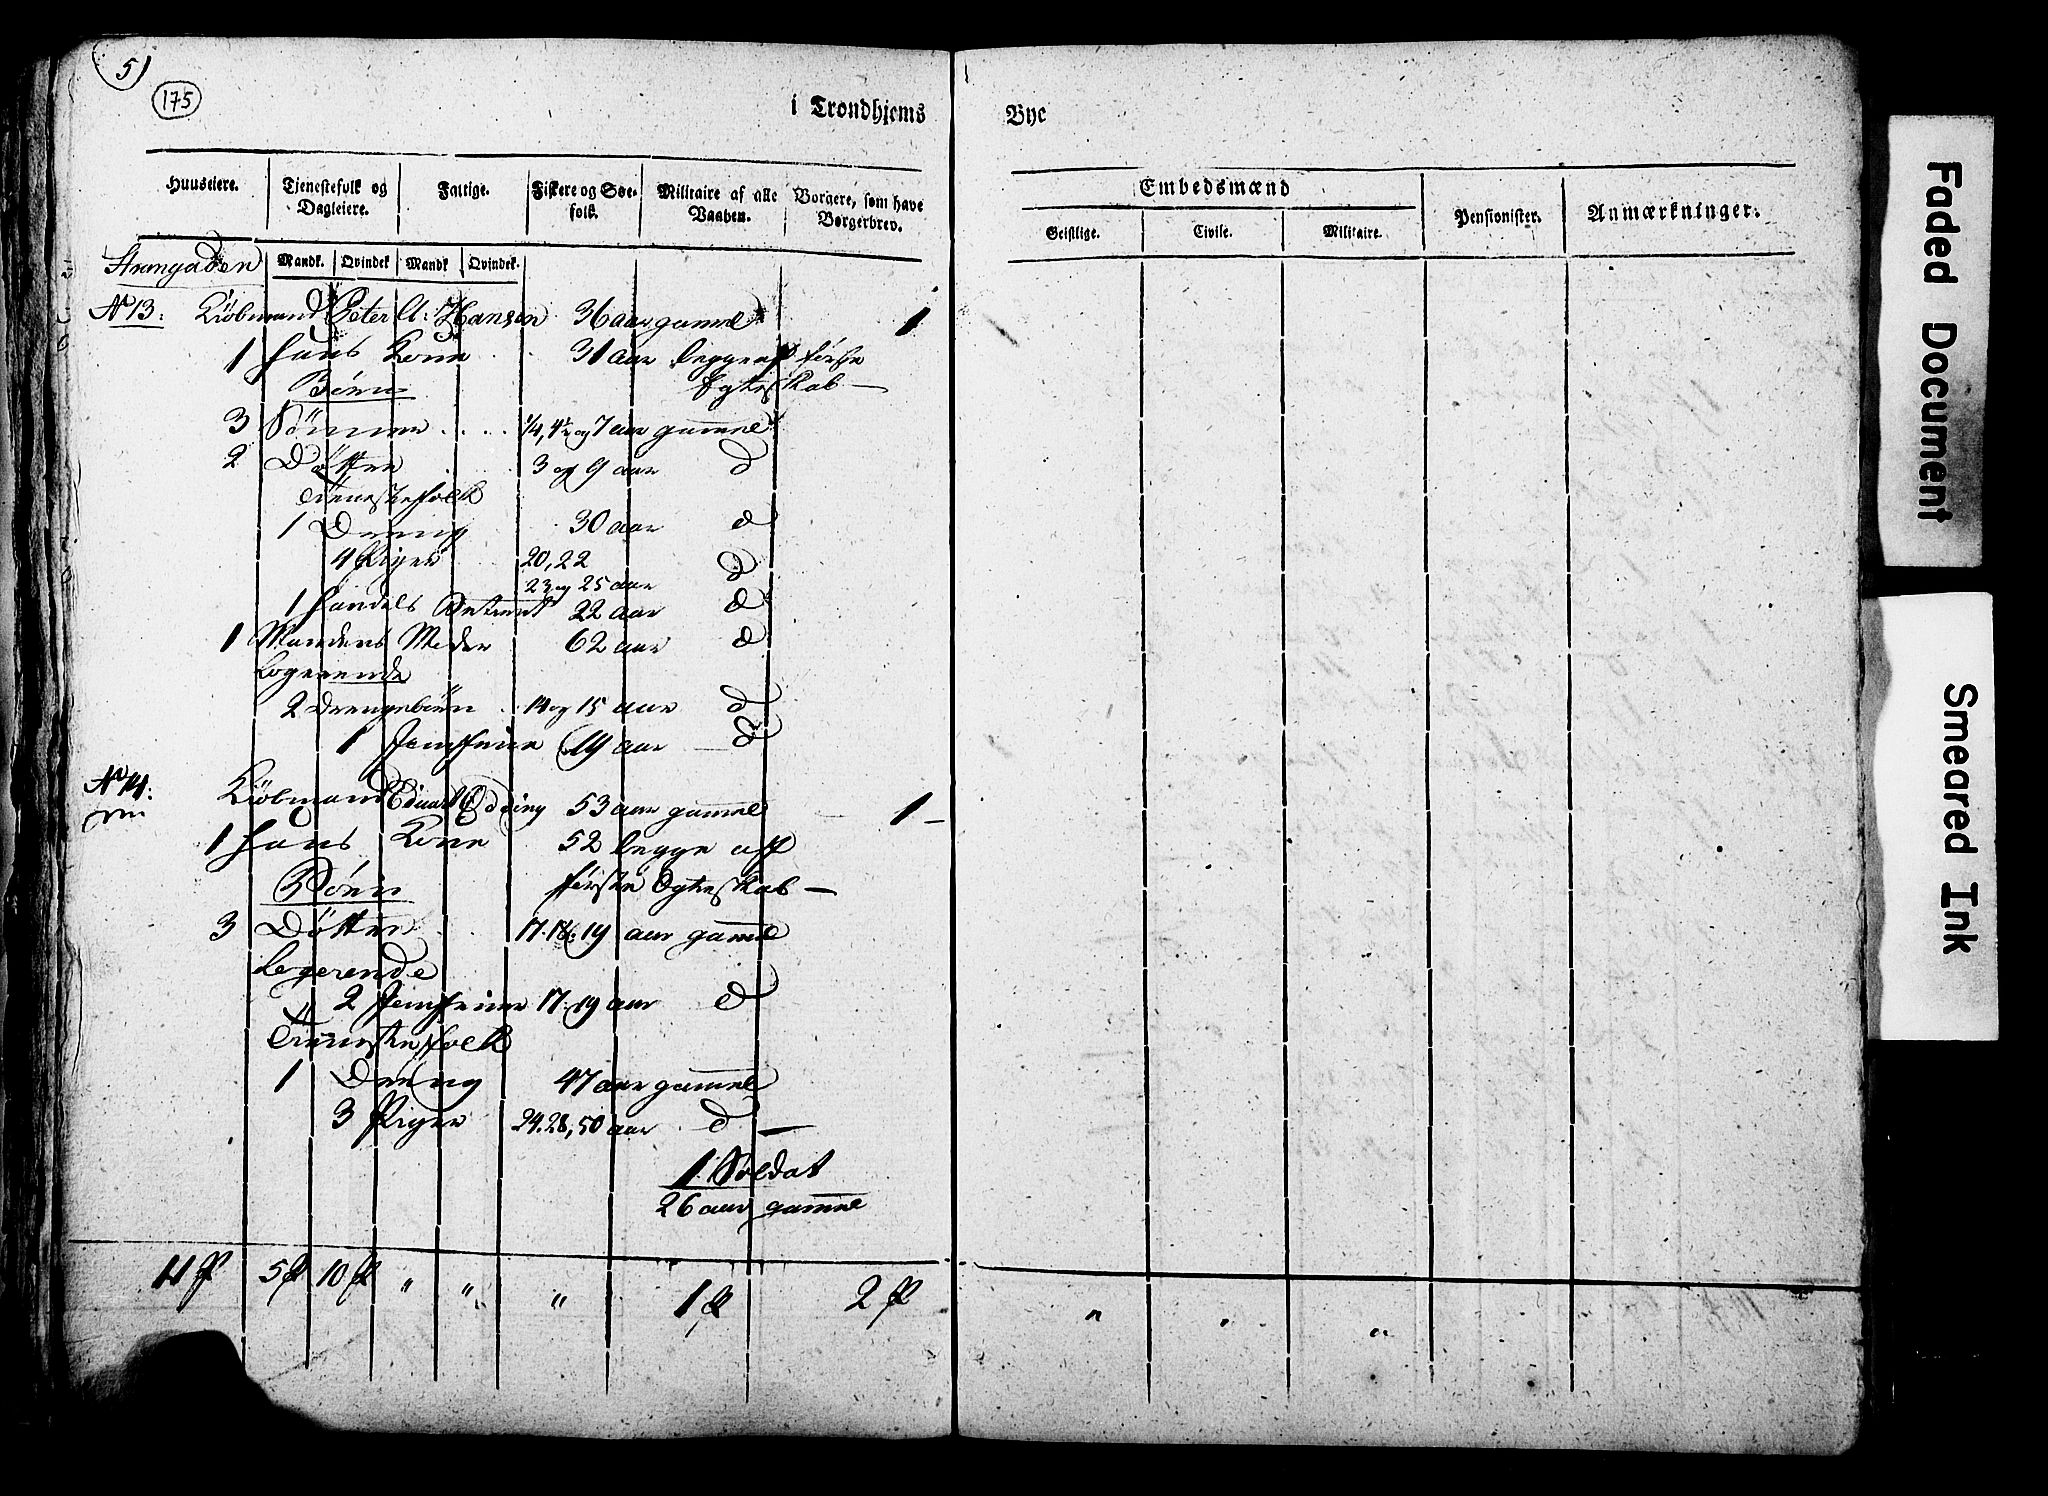 5
175
i Trondhjems Bye
Huuseiere. Tjenestefolk og Dagleiere. Fattige. Fiskere og Søe-folk. Militaire af alle Vaaben. Borgere, som have Borgerbrev. Embedsmænd Pensionister. Anmærkninger.
Geistlige. Civile. Militaire.
Mandk. Qvindek Mandk Qvindek.
Strandgaden
No 13: Kiöbmand Peter A: Hansen 36 aar gammel 1
1 Hans Kone 31 aar begge af første
Börn Egteskab —
3 Sönner 1/4, 4½ og 7 aar gammel
2 Dötter 3 og 9 aar d
Tienestefolk
1 Dreng 30 aar d
4 Piger 20, 22
23 og 25 aar d
1 Handels Betient 22 aar d
1 Mandens Moder 62 aar d
Logerende
2 Drengebörn 14 og 15 aar d
1 Jomfrue 19 aar d
No 14: Kiöbmand Eduart 53 aar gammel 1 —
1 Hans Kone 52 begge af
Börn første Egteskab —
3 Dötter 17. 18. 19 aar gammel
Logerende
2 Jomfruer 17. 19 aar d
Tienestefolk
1 Dreng 47 aar gammel
3 Piger 24. 28, 50 aar d —
1 Soldat
26 aar gammel
11 P 5 P 10 P " " " 1 P 2 P " " "
Faded Document
Smeared Ink